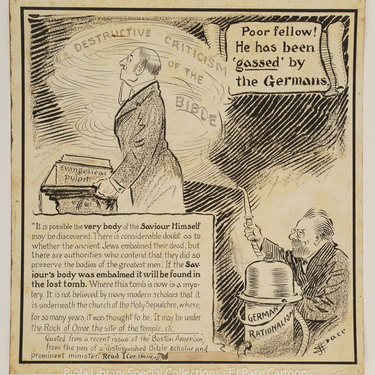 Poor fellow!
He has been
'gassed' by
the Germans.
DESTRUCTIVE CRITICISM
OF THE
BIBLE
Evangelical
pulpit
"It is possible the very body of the Saviour Himself
may be discovered. There is considerable doubt as to
whether the ancient Jews embalmed their dead, but
there are authorities who contend that they did so
preserve the bodies of the greatest men. If the Sav-
iour's body was embalmed it will be found in
the lost tomb. Where this tomb is now is a mys-
tery. It is not believed by many modern scholars that it
is underneath the church of the Holy Sepulchre, where,
for so many years, it was thought to be. It may be under
the Rock of Omar, the site of the temple, etc.
Quoted from a recent issue of the Boston American,
from the pen of a distinguished Bible scholar and
prominent minister. Read I Cor.
GERMAN
RATIONALISM
EJ Pace
Biola Library Special Collections - EJ Pace Cartoons